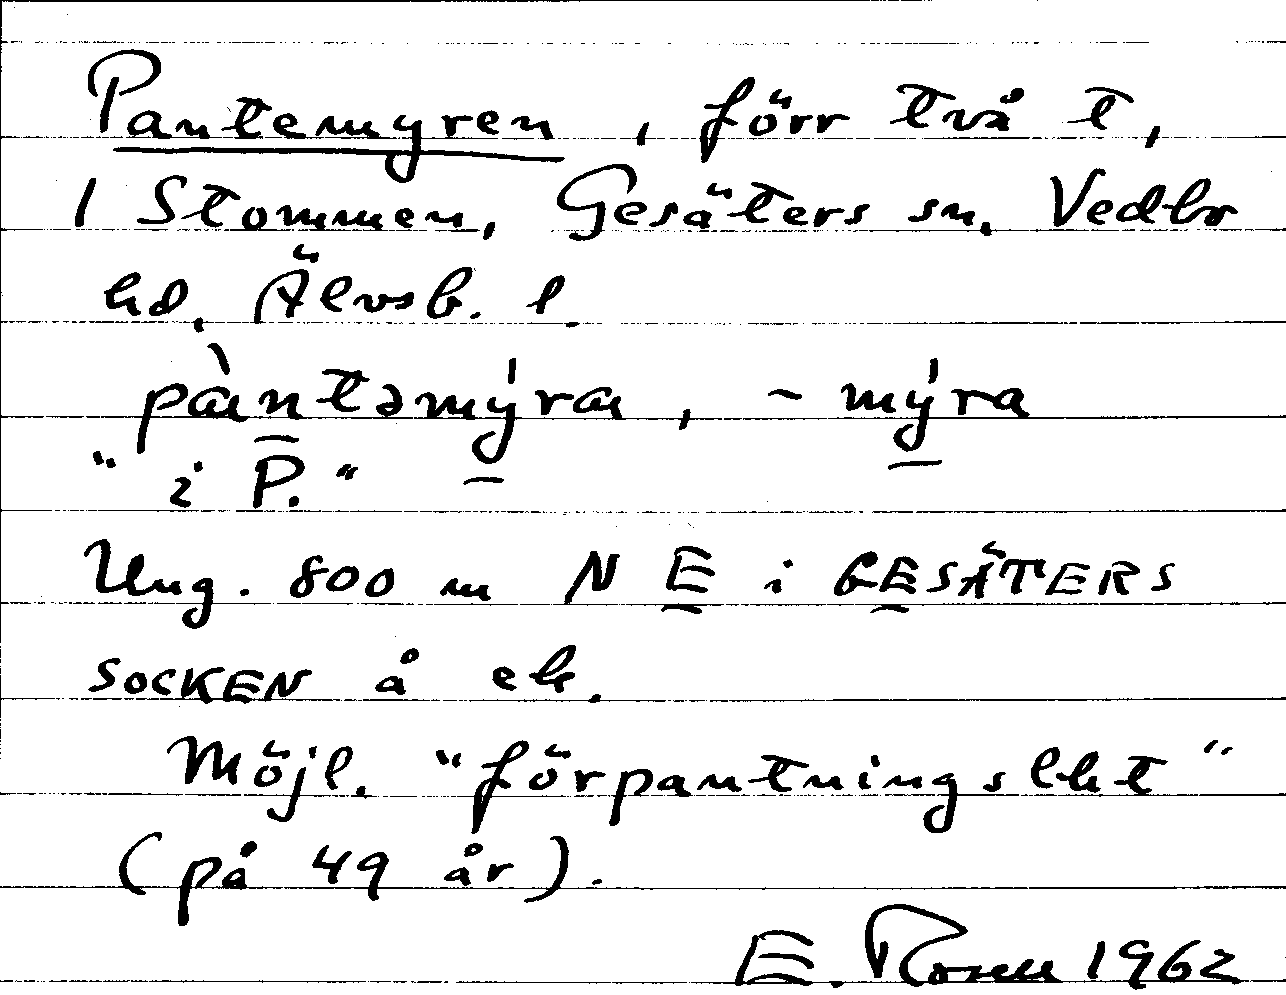 Pantemyren, förr två t,
1 Stommen, Gesäters sn, Vedbo
hd, Älvsb. l.
pàntəmý̱ra, ~ mý̱ra
"i P."
Ung. 800 m N E i GESÄTERS
SOCKEN å ek.
Möjl. "förpantningslht"
(på 49 år).
E. 1962